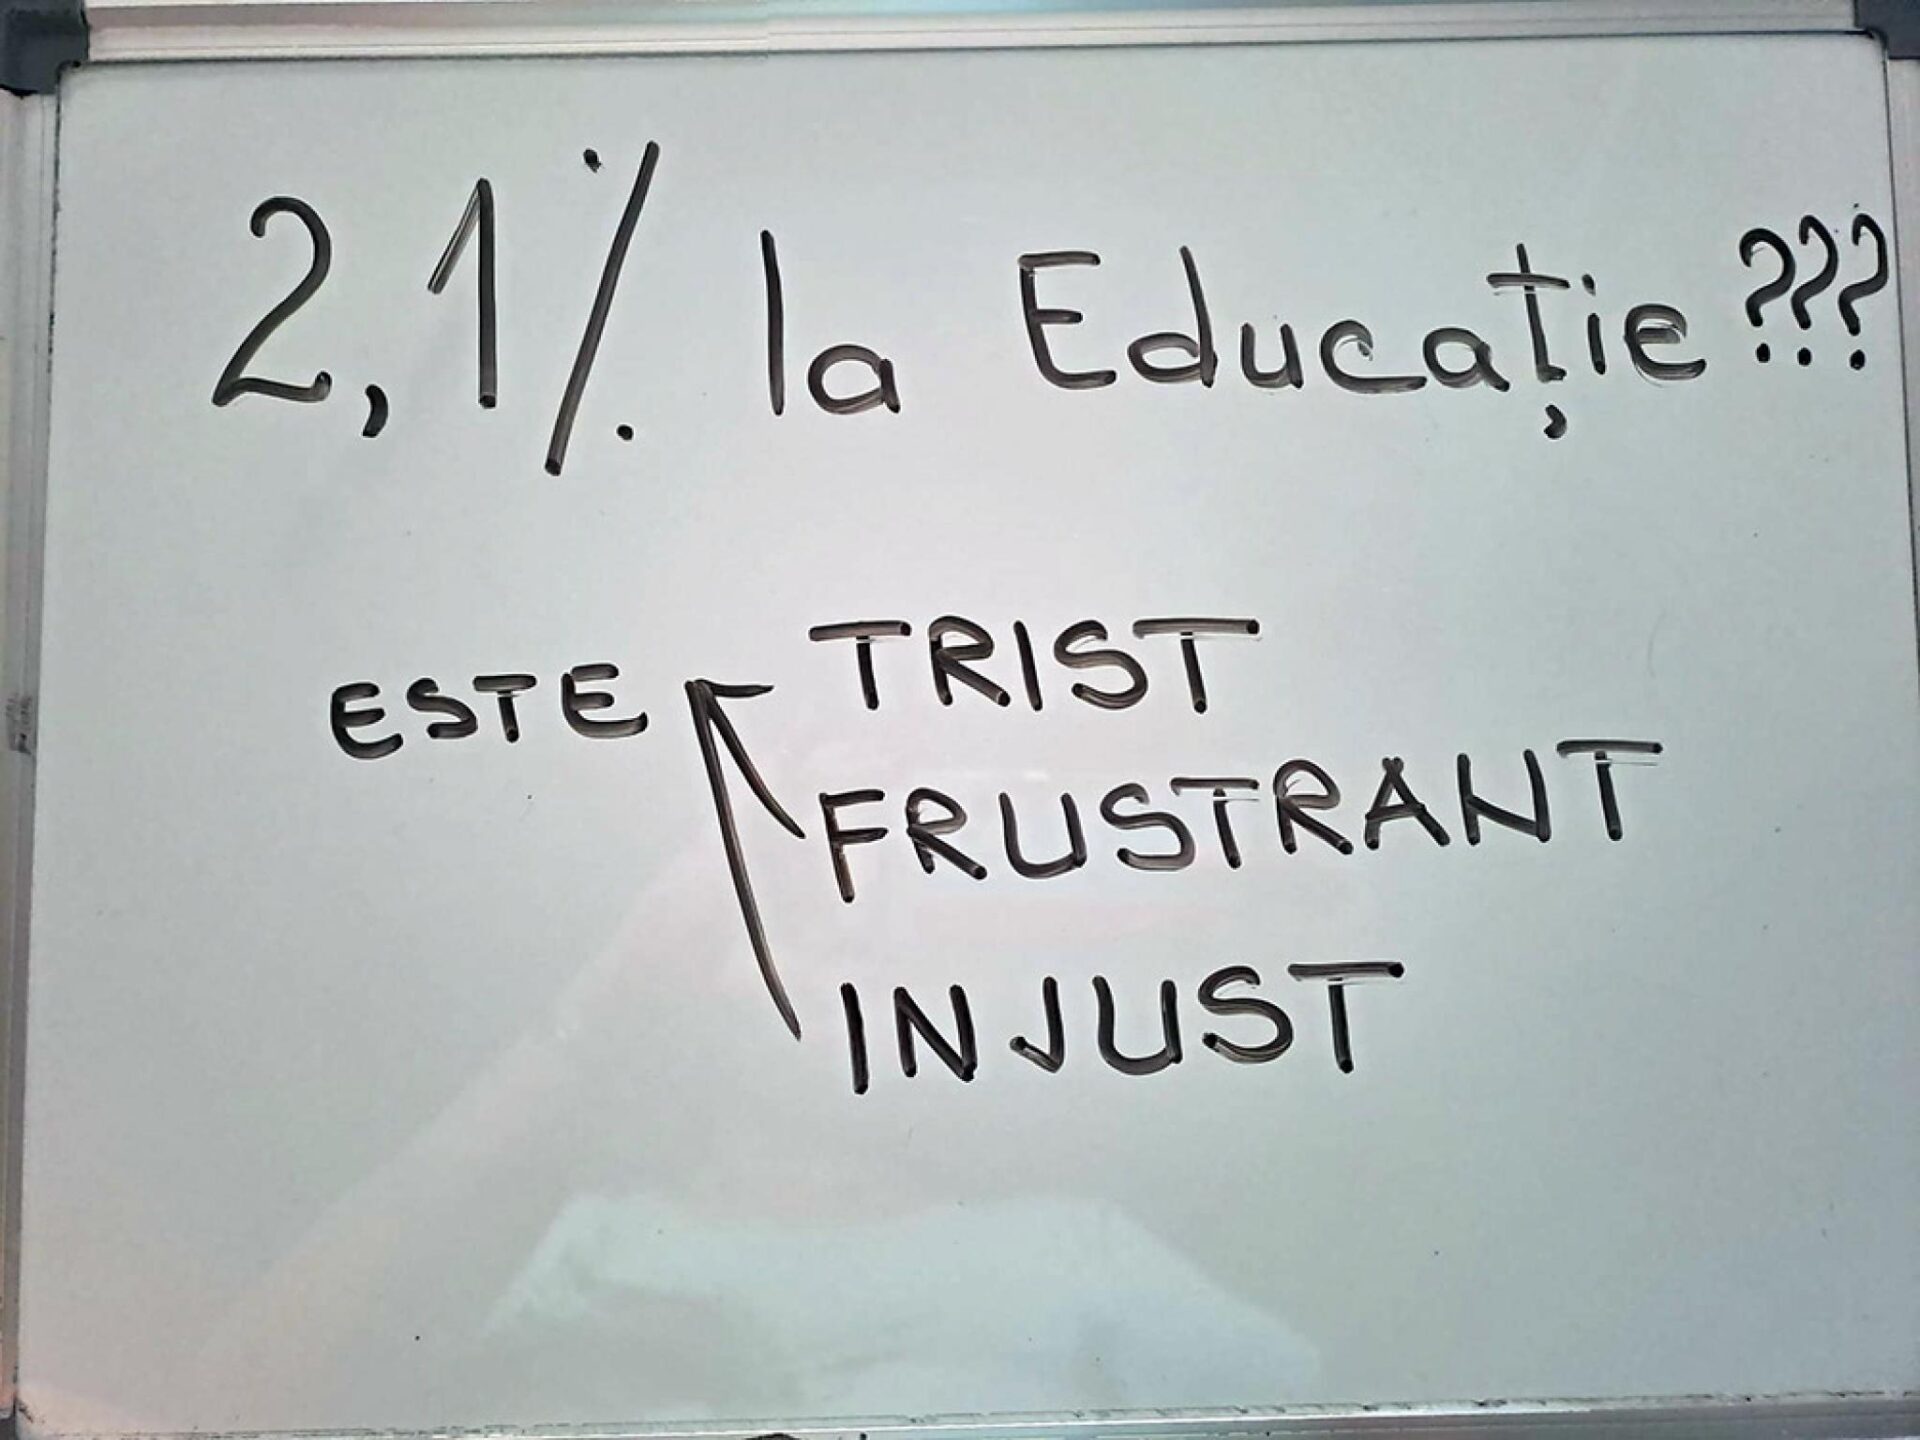 2,1% la Educație???
ESTE TRIST
FRUSTRANT
INJUST